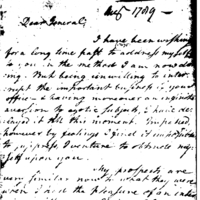 Augt 1789
Dear General,
I have been wishing
for a long time past to address myself
to you in the method I am now do
ing. But being unwilling to inter
rupt the important business of your
office & having moreover an
aversion to Subjects, I have
delayed it till this moment. Impelled
however by feelings I find it
to suppress I venture to obtrude my
self upon you.
My prospects are
very similar now to what they were
when I had the pleasure of an